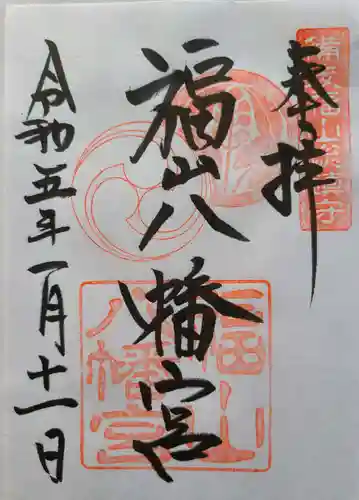 奉拝
福山八幡宮
令和五年一月十一日
備後福山総鎮守
福山
八幡宮